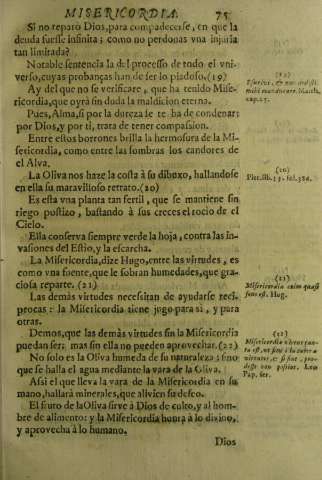 MISERICORDIA. 75
Si no reparò Dios, para compadecerse, en que la
deuda fuesse infinita; como no perdonas vna injuria
tan limitada?
Notable sentencia la del processo de todo el vni-
verso, cuyas probanças han de ser lo piadoso. (19)
Ay del que no se verificare, que ha tenido Mise-
ricordia, que oyrà sin duda la maldicion eterna.
Pues, Alma, si por la dureza se te ha de condenar;
por Dios, y por ti, trata de tener compasion.
Entre estos borrones brilla la hermosura de la Mi-
sericordia, como entre las sombras los candores de
el Alva.
La Oliva nos haze la costa à su dibuxo, hallandose
en ella su maravilloso retrato. (20)
Es esta vna planta tan fertil, que se mantiene sin
riego postizo, bastando à sus creces el rocio de el
Cielo.
Ella conserva siempre verde la hoja, contra las in-
vasiones del Estio, y la escarcha.
La Misericordia, dize Hugo, entre las virtudes, es
como vna fuente, que le sobran humedades, que gra-
ciosa reparte. (21)
Las demàs virtudes necesitan de ayudarse reci-
procas: la Misericordia tiene jugo para si, y para
otras.
Demos, que las demàs virtudes sin la Misericordia
puedan ser; mas sin ella no pueden aprovechar. (22)
No solo es la Oliva humeda de su naturaleza; sino
que se halla el agua mediante la vara de la Oliva.
Assi el que lleva la vara de la Misericordia en su
mano, hallarà minerales, que alivien su deseo.
El fruto de la Oliva sirve à Dios de culto, y al hom-
bre de alimento: y la Misericordia honra à lo divino,
y aprovecha à lo humano.
Dios
(19)
Esurivi, & non dedistis
mihi manducare. Matth.
cap. 25.
(20)
Pier. lib. 53. fol. 386.
(21)
Misericordia enim quasi
fons est. Hug.
(22)